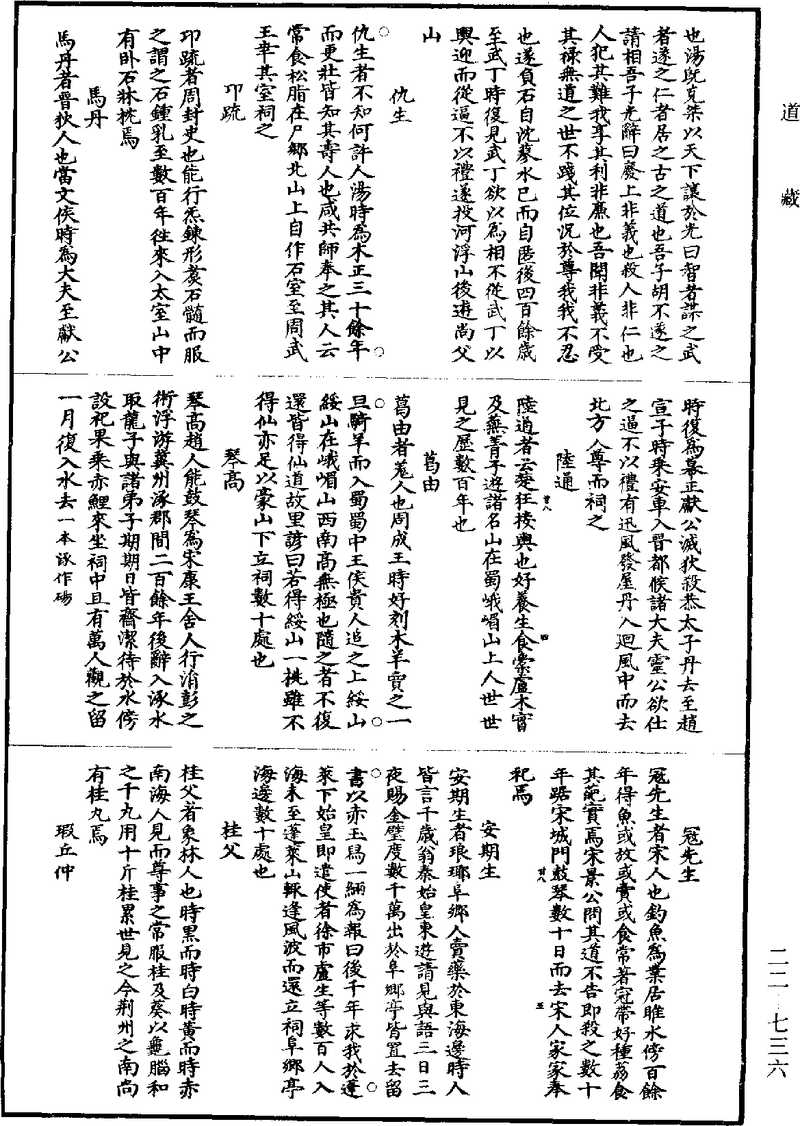 道藏
也湯既克桀以天下讓於光曰智者謀之武
者遂之仁者居之古之道也吾子胡不遂之
請相吾子光辭曰廢上非義也殺人非仁也
人犯其難我享其利非廉也吾聞非義不受
其祿無道之世不踐其位況於尊我我不忍
也遂負石自沈蓼水已而自匿後四百餘歲
至武丁時復見武丁欲以為相不從武丁以
輿迎而從逼不以禮遂投河浮山後遊尚父
山
仇生
仇生者不知何許人湯時為木正三十餘年
而更壯皆知其壽人也咸共師奉之其人云
常食松脂在尸鄉北山上自作石室至周武
王幸其室祠之
卭疏
卭疏者周封史也能行炁鍊形煑石髓而服
之謂之石鍾乳至數百年往來入太室山中
有卧石牀枕焉
馬丹
馬丹者晉狄人也當文侯時為大夫至獻公
時復為幕正獻公滅狄殺恭太子丹去至趙
宣子時乘安車入晉都候諸大夫靈公欲仕
之逼不以禮有迅風發屋丹入迴風中而去
北方人尊而祠之
陸通
陸通者云楚狂接輿也好養生食橐盧木實
及蕪菁子遊諸名山在蜀峨嵋山上人世世
見之歷數百年也
葛由
葛由者羗人也周成王時好刻木羊賣之一
旦騎羊而入蜀蜀中王侯貴人追之上綏山
綏山在峨嵋山西南高無極也隨之者不復
還皆得仙道故里諺曰若得綏山一桃雖不
得仙亦足以豪山下立祠數十處也
琴高
琴高趙人能鼓琴為宋康王舍人行涓彭之
術浮游冀州涿郡間二百餘年後辭入涿水
取龍子與諸弟子期期日皆齋潔待於水傍
設祀果乘赤鯉來坐祠中且有萬人觀之留
一月復入水去一本涿作碭
冦先生
冦先生者宋人也釣魚為業居睢水傍百餘
年得魚或放或賣或食常著冠帶好種荔食
其葩實焉宋景公問其道不告即殺之數十
年踞宋城門鼓琴數十日而去宋人家家奉
祀焉
安期生
安期生者琅琊阜鄉人賣藥於東海邊時人
皆言千歲翁秦始皇東遊請見與語三日三
夜賜金璧度數千萬出於阜鄉亭皆置去留
書以赤玉舄一緉為報曰後千年求我於蓬
萊下始皇即遣使者徐市盧生等數百人入
海未至蓬萊山輒逢風波而還立祠阜鄉亭
海邊數十處也
桂父
桂父者象林人也時黑而時白時黃而時赤
南海人見而尊事之常服桂及葵以龜腦和
之千丸用十斤桂累世見之今荆州之南尚
有桂丸焉
瑕丘仲
二二·七三六